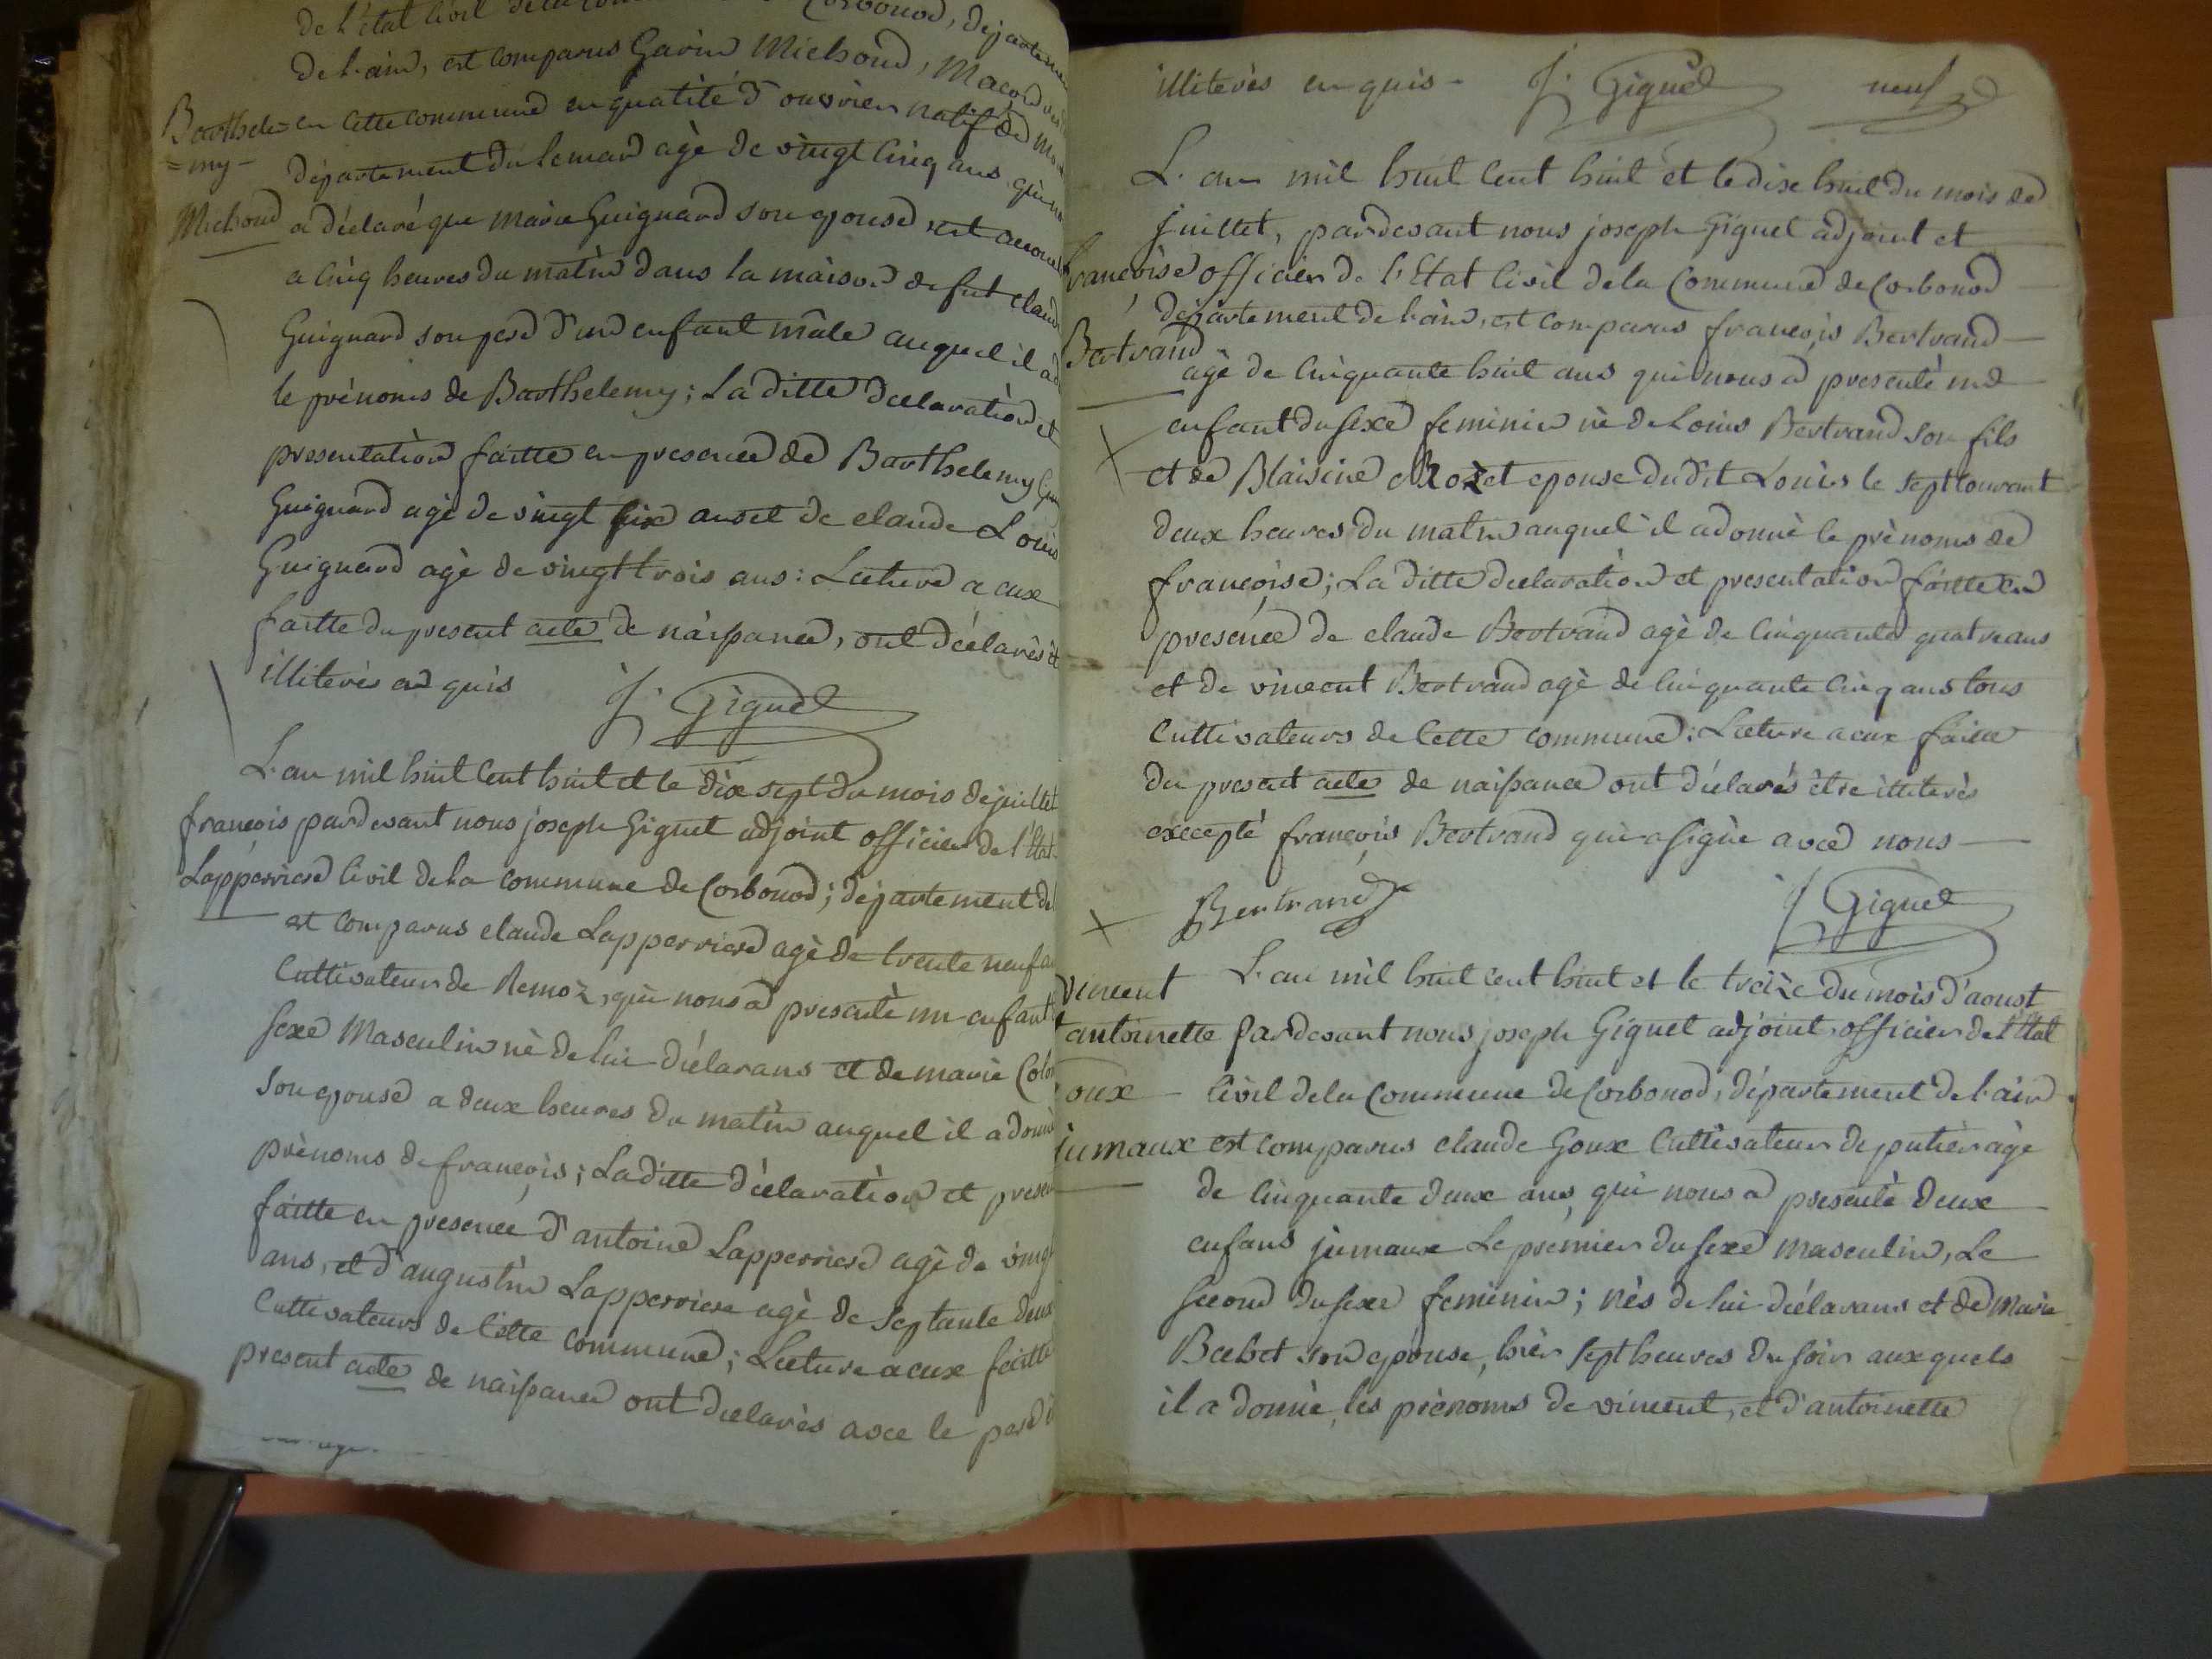 de l'état Civil de la Corbonod, departemen
de l'ain, est comparus Gavin Michoud, Maçon
Barthele= en cette commune en qualité d'ouvrier natif de
=my- département du leman agè de vingt Cinq ans qui
Michoud a déclaré que marie Guignard son epouse est
a Cinq heures du matin dans la maison de fut claude
Guignard son pere d'un enfant mâle auquel il a
le prénoms de Barthelemy; La ditte declaration et
presentation faitte en presence de Barthelemy
Guignard agè de vingt six ans et de claude Louis
Guignard agè de vingt trois ans: Lecture a eux
faitte du present acte de naissance, ont déclarés
illiterés en quis J. Giguet
L'an mil huit Cent huit et le dix sept du mois de juillet
francois pardevant nous joseph Giguet adjoint officier de l'Etat
Lapperriere Civil de la commune de Corbonod; département de
est comparus claude Lapperriere agè de trente neuf
Cultivateur de Remoz, qui nous a presentè un enfant
sexe Masculin nè de lui déclarans et de marie
son epouse a deux heures du matin auquel il a donnè
prènoms de francois; La ditte déclaration et
faitte en presence d'antoine Lapperriere agè de vingt
ans, et d'augustin Lapperriere agè de septante deux
Cultivateurs de Cette commune; Lecture a eux faitte
present acte de naissance ont declarès avec le pere
illiterès en quis - J. Giguet neuf
L'an mil huit Cent huit et le dix huit du mois de
juillet, pardevant nous joseph Giguet adjoint et
francoise officier de l'Etat Civil de la Commune de Corbonod
département de l'ain, est comparus francois Bertrand
Bertrand agè de Cinquante huit ans qui nous a presentè un
enfant du sexe feminin nè de Louis Bertrand son fils
et de Blaisine Rozet epouse du dit Louis le sept Courant
deux heures du matin auquel il a donnè le prènoms de
francoise; La ditte declaration et presentation faitte en
presence de claude Bertrand agè de Cinquante quatre ans
et de vincent Bertrand agè de Cinquante Cinq ans tous
Cultivateurs de Cette commune: Lecture a eux faitte
du present acte de naissance ont déclarés être illiterés
excepté francois Bertrand qui a signè avec nous
Bertrand J Giguet
vincent L'an mil huit cent huit et le treize du mois d'aoust
antoinette Pardevant nous joseph Giguet adjoint officier de l'Etat
oux Civil de la Commune de Corbonod, département de l'ain
jumaux est comparus claude Goux Cultivateur de putier àgè
de Cinquante deux ans, qui nous a presentè deux
enfans jumaux Le premier du sexe masculin, Le
second du sexe feminin; nès de lui déclarans et de Marie
son epouse, hier sept heures du soir aux quels
il a donnè les prénoms de vincent, et d'antoinette